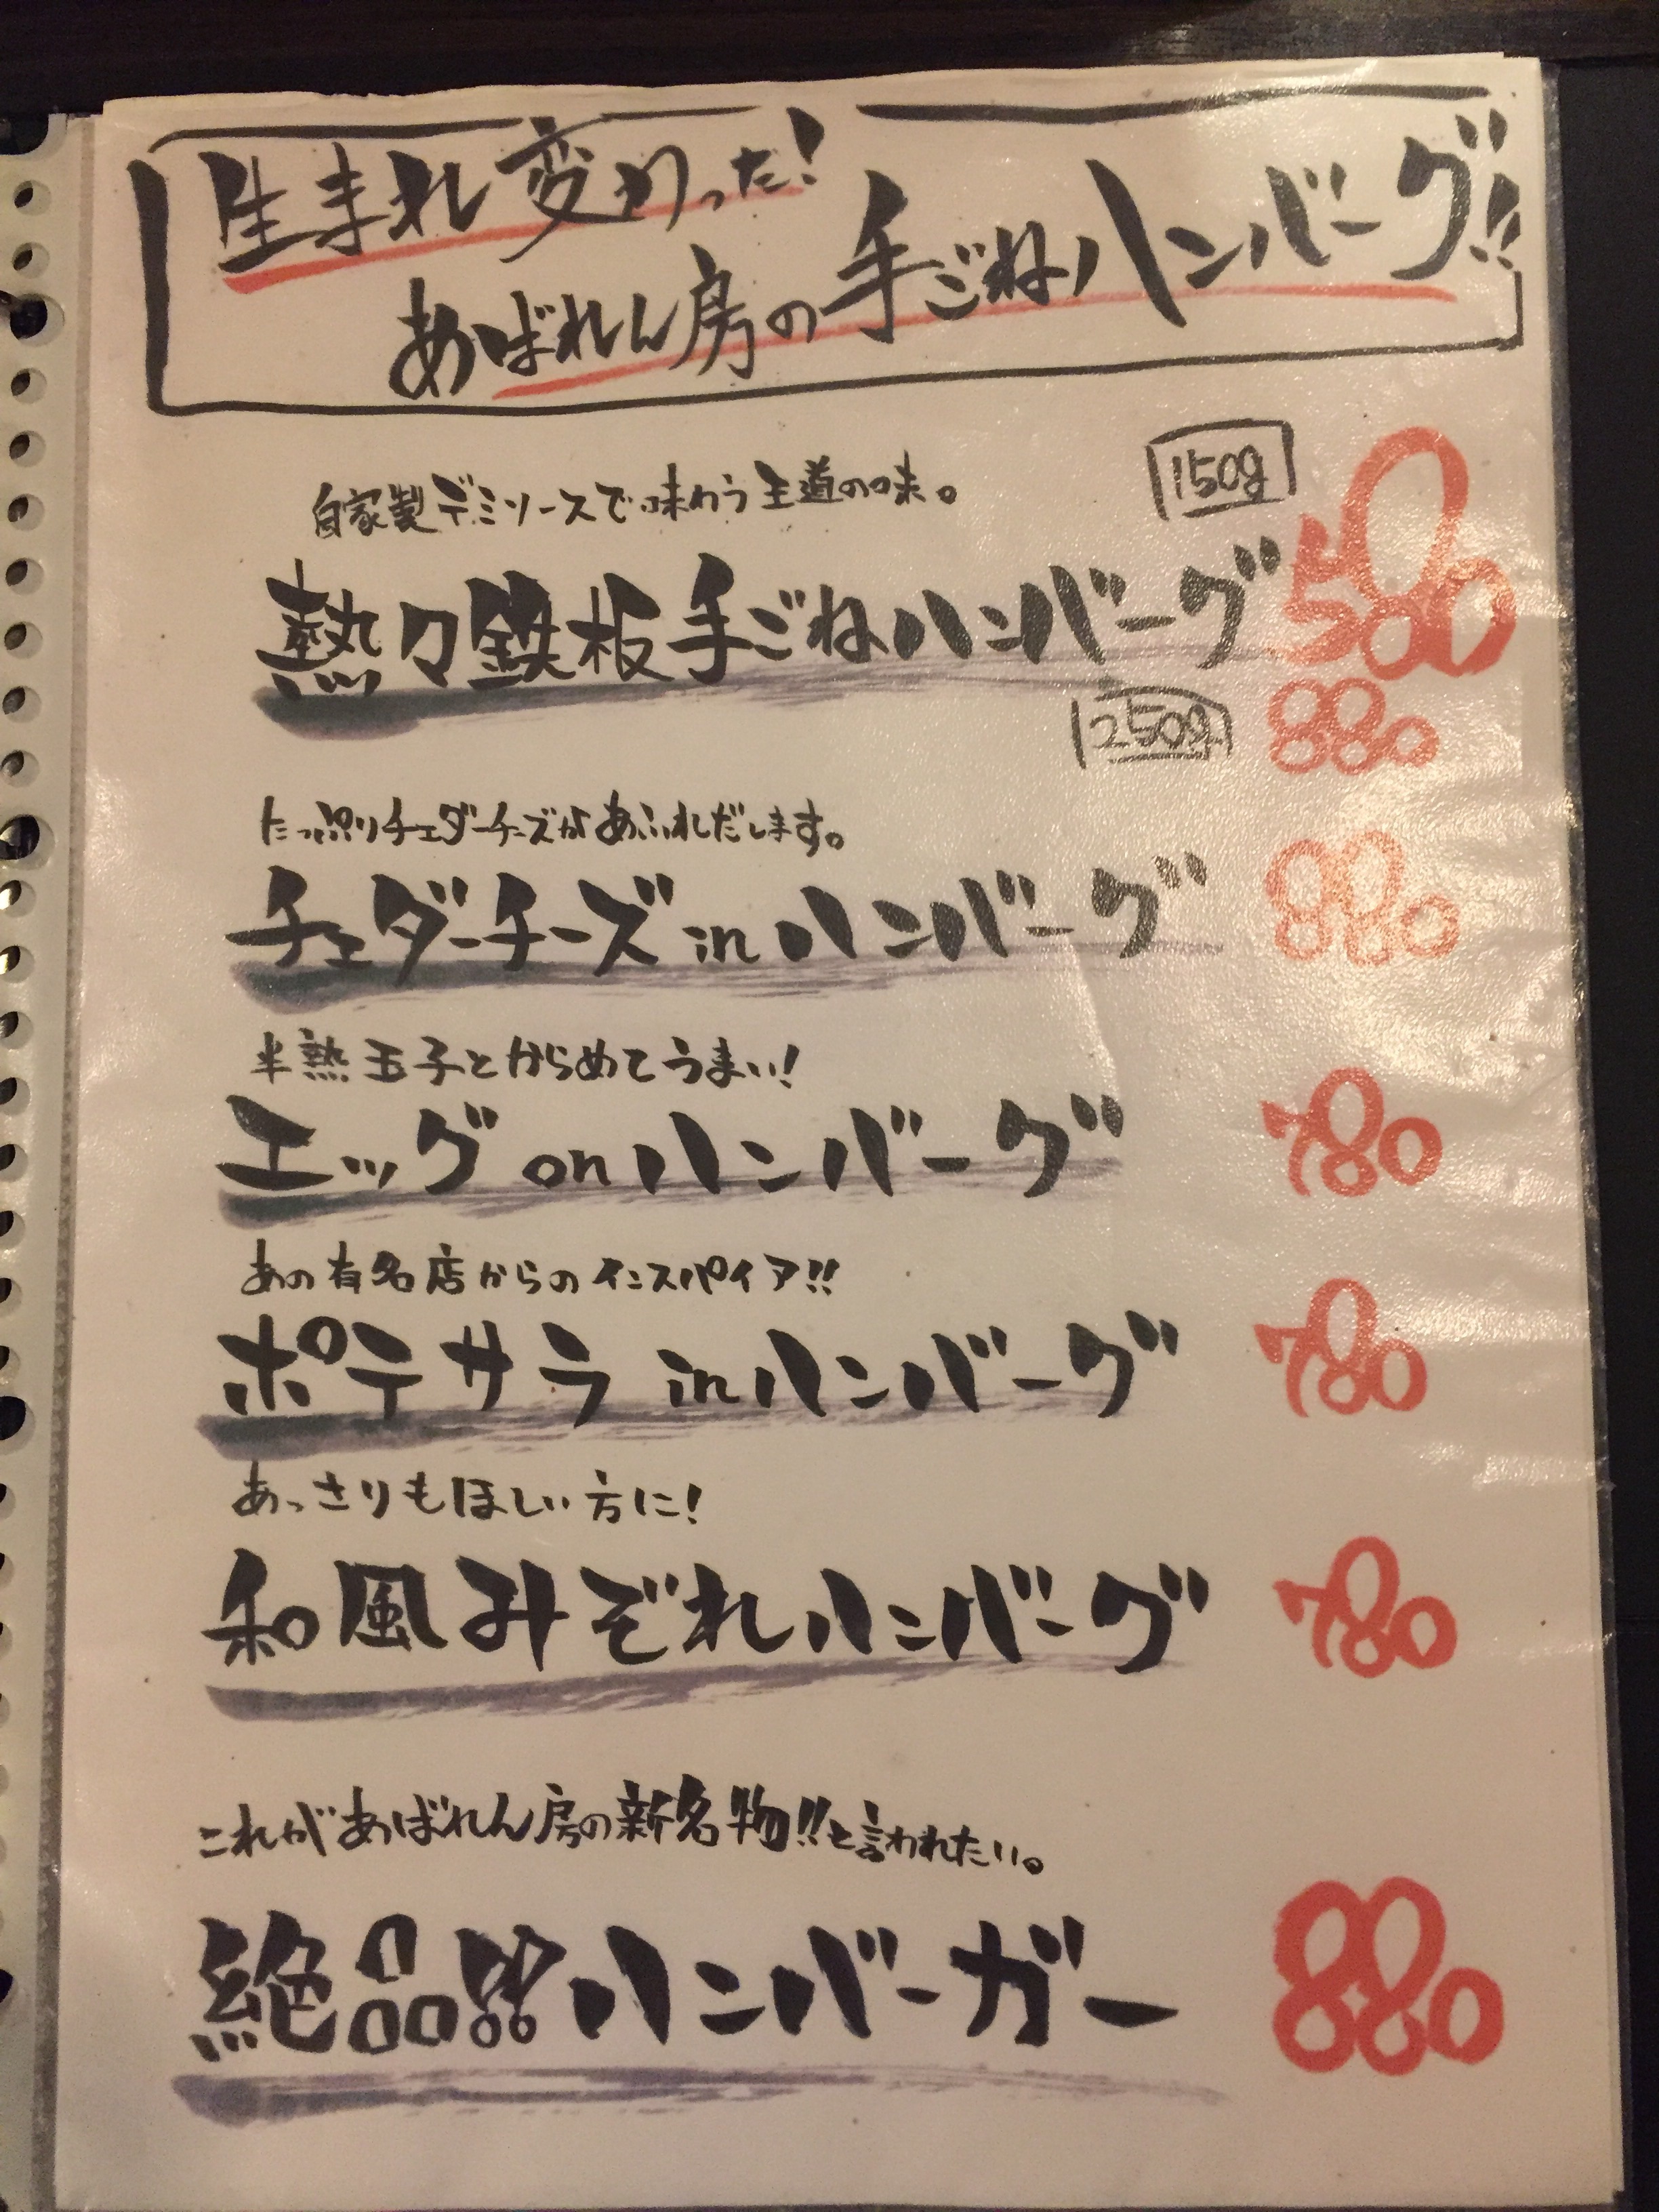 生まれ変わった!
あばれん房の手ごねハンバーグ!!
自家製デミソースで味わう王道の味。
150g
熱々鉄板手ごねハンバーグ 580
250g 880
たっぷりチェダーチーズがあふれだします。
チェダーチーズinハンバーグ 880
半熟玉子とからめてうまい!
エッグonハンバーグ 780
あの有名店からのインスパイア!!
ポテサラinハンバーグ 780
あっさりもほしい方に!
和風みぞれハンバーグ 780
これがあばれん房の新名物!!と言われたい。
絶品!!ハンバーガー 880